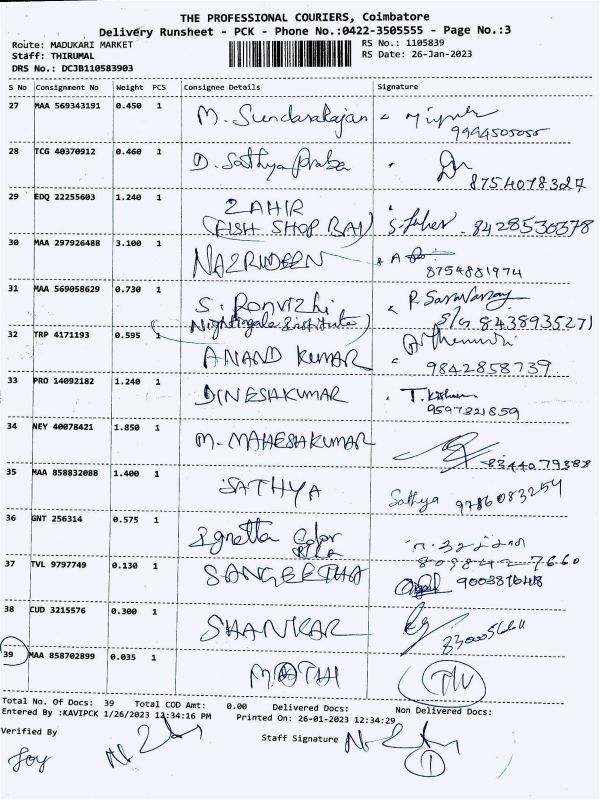 THE PROFESSIONAL COURIERS, Coimbatore
Delivery Runsheet - PCK - Phone No.:0422-3505555 - Page No.:3
Route: MADUKARI MARKET RS No.: 1105839
Staff: THIRUMAL RS Date: 26-Jan-2023
DRS No.: DCJB110583903
S No Consignment No Weight PCS Consignee Details Signature
27 MAA 569343191 0.450 1 M. Sundararajan
9994505055
28 TCG 40370912 0.460 1 D. Sathya Praba
8754078327
29 EDQ 22255603 1.240 1 ZAHIR
(FISH SHOP BAI) 8428530378
30 MAA 297926488 3.100 1 NAZRUDEEN
8754881974
31 MAA 569058629 0.730 1 S. Ponvizhi
(Nightingale Institute) S/G 8438935271
32 TRP 4171193 0.595 1 ANAND KUMAR
9842858739
33 PRO 14092182 1.240 1 DINESHKUMAR
9597321859
34 NEY 40078421 1.850 1 M. MAHESHKUMAR
8344079388
35 MAA 858832088 1.400 1 SATHYA Sathya 9786083254
36 GNT 256314 0.575 1 Color
37 TVL 9797749 0.130 1 SANGEETHA
38 CUD 3215576 0.300 1 SHANKAR
39 MAA 858702899 0.035 1
Total No. Of Docs: 39 Total COD Amt: 0.00 Delivered Docs: Non Delivered Docs:
Entered By :KAVIPCK 1/26/2023 12:34:16 PM Printed On: 26-01-2023 12:34:29
Verified By Staff Signature
Joy
1